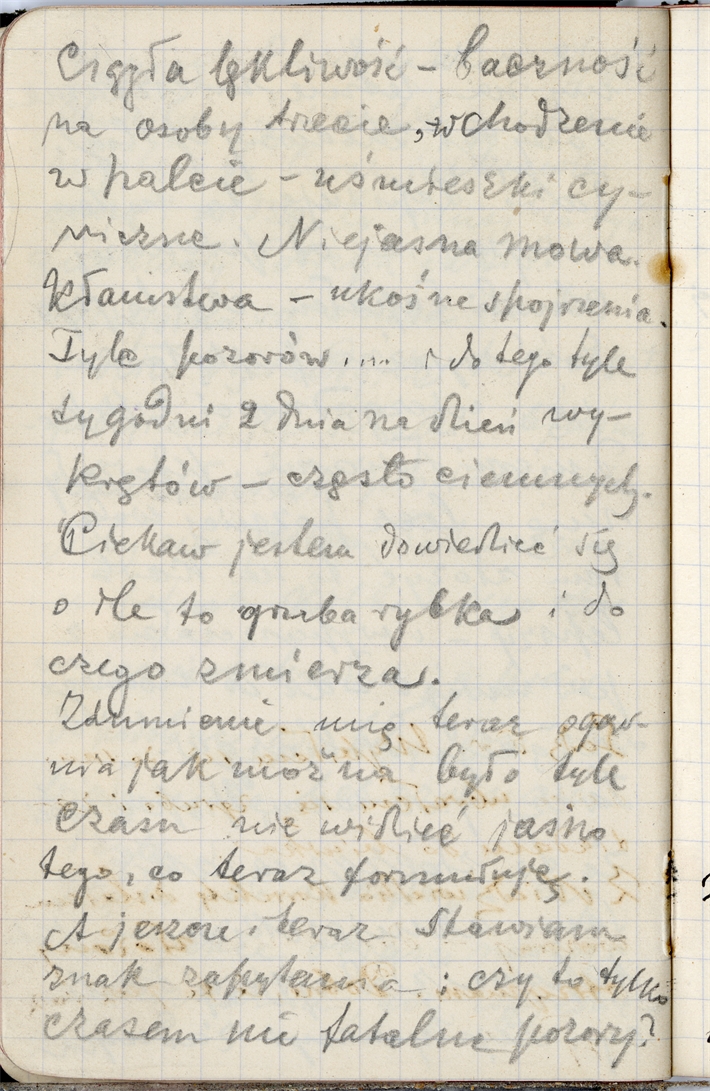 Ciągła lękliwość - baczność
na osoby trzecie, wchodzenie
w palcie - uśmieszki cy-
niczne. Niejasna mowa.
Kłamstwa - ukośne spojrzenia.
Tyle pozorów.... i do tego tyle
tygodni z dnia na dzień wy-
krętów - często ciemnych.
Ciekaw jestem dowiedzieć się
o ile to gruba rybka i do
czego zmierza.
Zdumienie mię teraz ogar-
nia jak można było tyle
czasu nie widzieć jasno
tego, co teraz formułuję.
A jeszcze i teraz stawiam
znak zapytania: czy to tylko
czasem nie fatalne pozory?